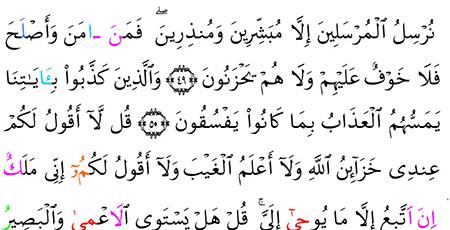 نُرْسِلُ ٱلْمُرْسَلِينَ إِلَّا مُبَشِّرِينَ وَمُنذِرِينَ ۖ فَمَنَ ـٰامَنَ وَأَصْلَحَ
فَلَا خَوْفٌ عَلَيْهِمْ وَلَا هُمْ يَحْزَنُونَ ﴿٤٩﴾ وَٱلَّذِينَ كَذَّبُوا۟ بِـَٔايَـٰتِنَا
يَمَسُّهُمُ ٱلْعَذَابُ بِمَا كَانُوا۟ يَفْسُقُونَ ﴿٥٠﴾ قُل لَّآ أَقُولُ لَكُمْ
عِندِى خَزَآئِنُ ٱللَّهِ وَلَآ أَعْلَمُ ٱلْغَيْبَ وَلَآ أَقُولُ لَكُمُۥٓ إِنِّى مَلَكٌ
إِنَ اَتَّبِعُ إِلَّا مَا يُوحِىٰٓ إِلَىَّ ۚ قُلْ هَلْ يَسْتَوِى ٱلَاعْمِىٰ وَٱلْبَصِيرُ